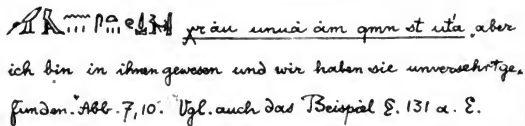 χr áu unuá ám gmn st utá „aber
ich bin in ihnen gewesen und wir haben sie unversehrt ge-
funden." Abb. 7, 10. Vgl. auch das Beispiel §. 131 a. E.